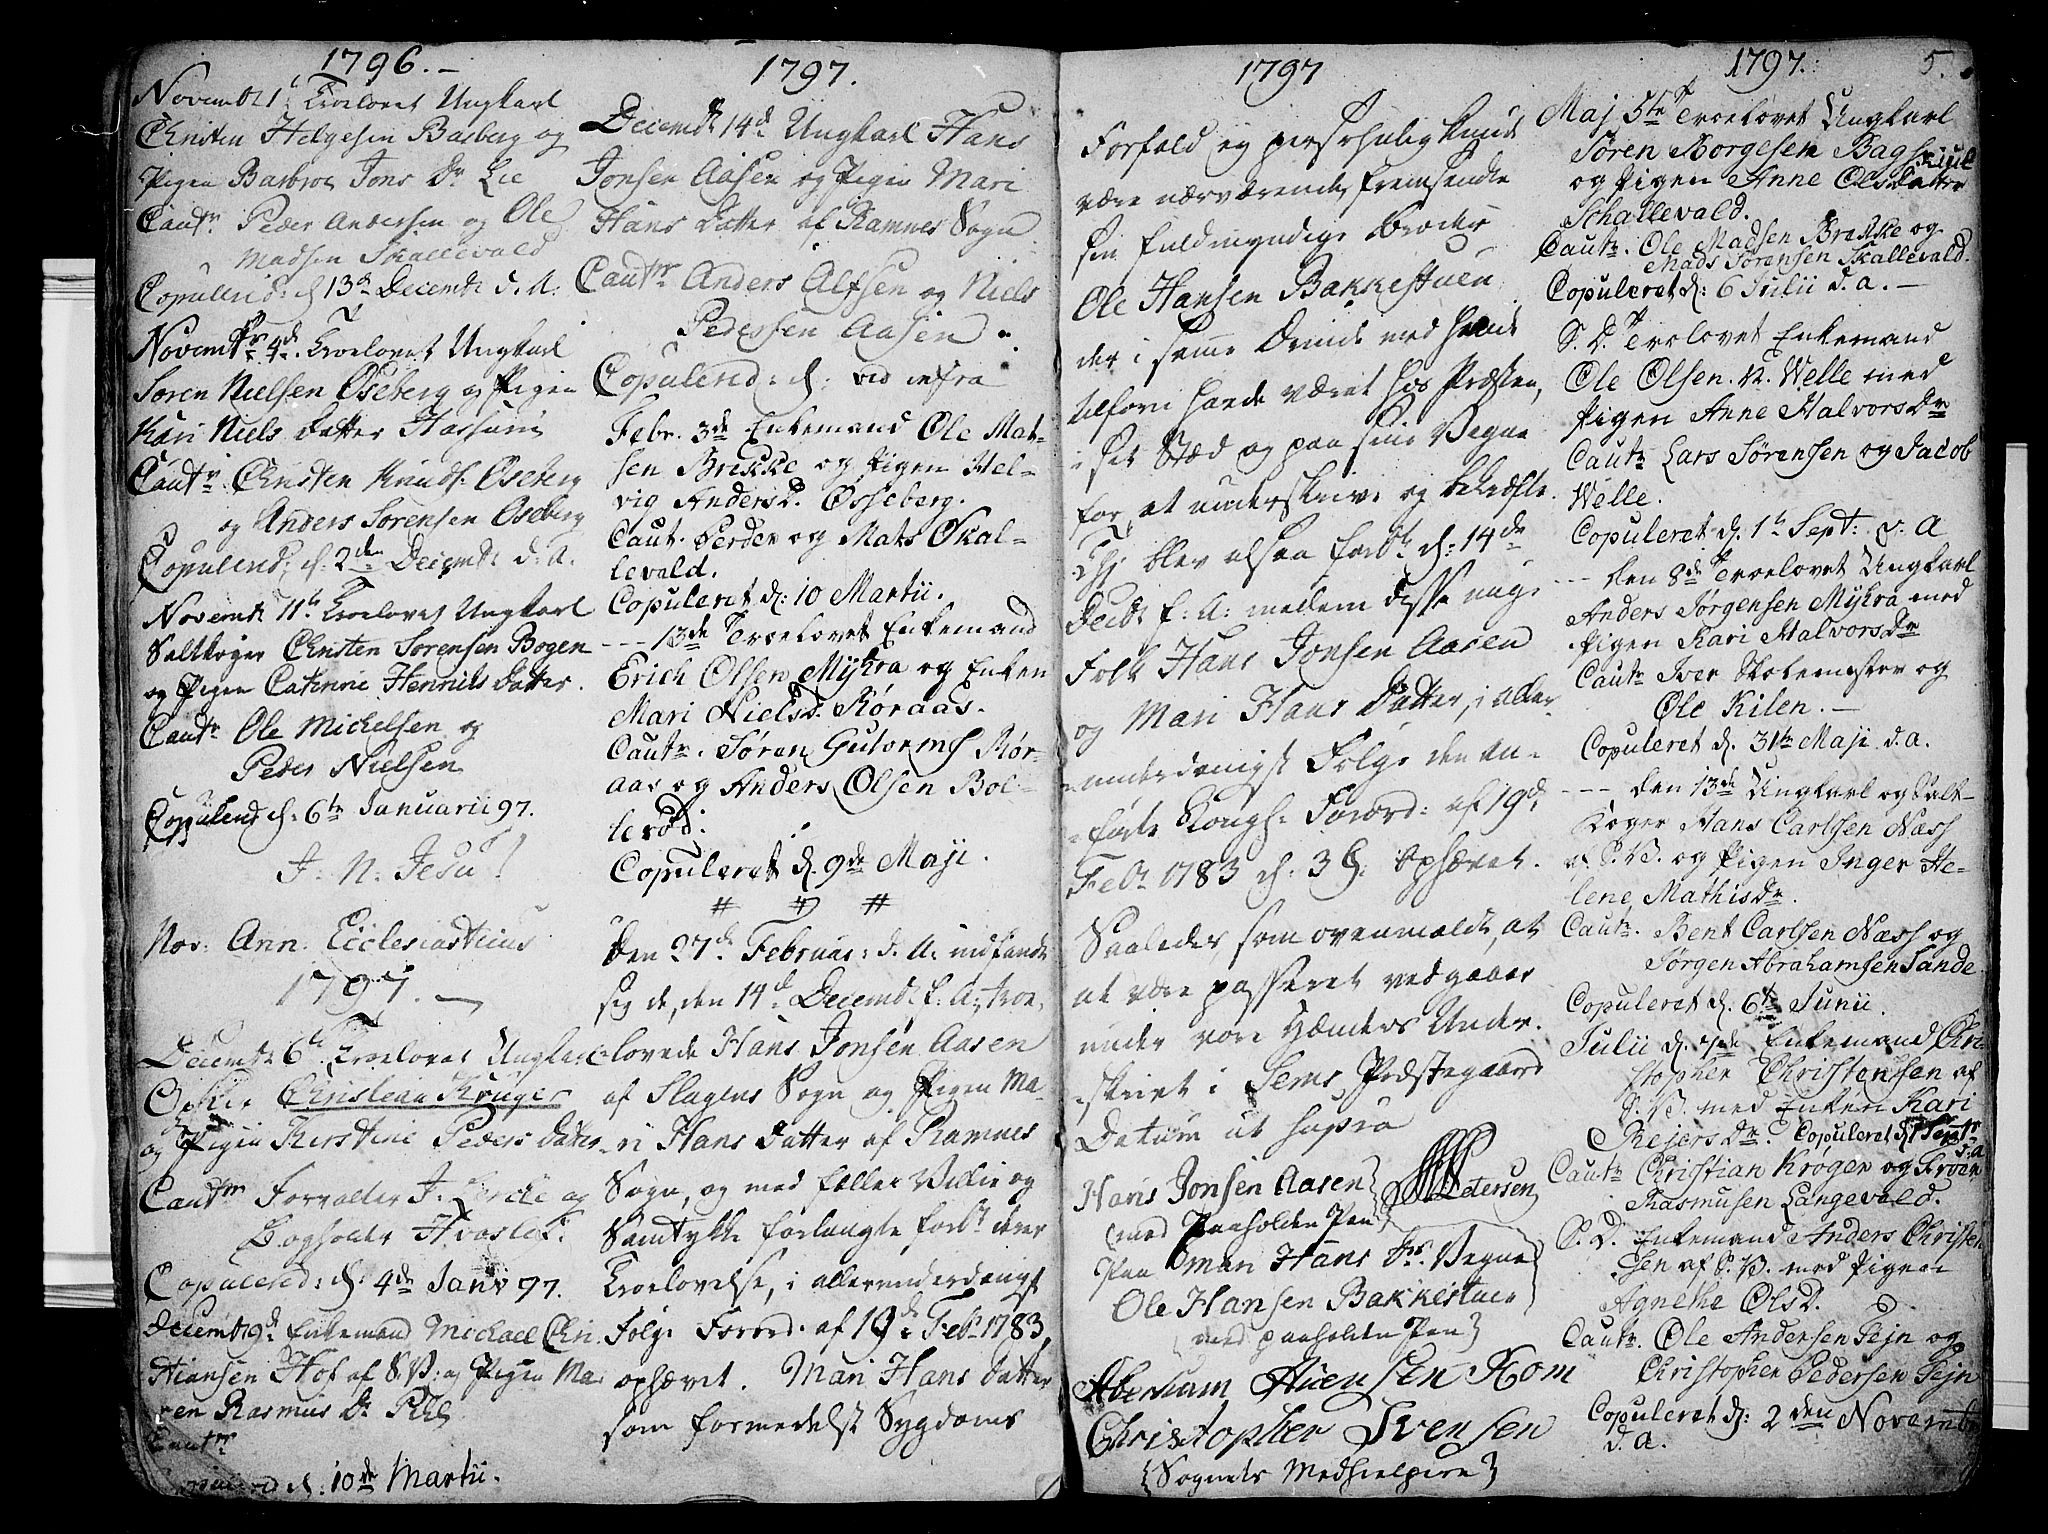 1796.
Novembr 1t Troelovet Ungkarl
Christen Helgesen Basberg og
Pigen Barbroe Jons Dr Lie
Cautr Peder Andersen og Ole
Madsen Skallevald
Copulered: d 13de Decembr d. A:
Novembr 4de Troelovet Ungkarl
Søren Nielsen Oseberg og Pigen
Kari Niels Datter Hassum
Cautr Christen Knuds. Oseberg
og Anders Sørensen Oseberg
Copulered: d. 2den Decembr d. A.
Novembr 11te Troelovet Ungkarl
Saltkoger Christen Sørensen Bogen
og Pigen Catrine Henriks Datter.
Cautr Ole Michelsen og
Peder Nielsen
Copulered d: 6te Januarii 97.
J. N. Jesu!
Nov: Ann. Ecclesiasticus
1797.
Decembr 6te Troelovet Ungkarl
Christian Krøger
og Pigen Kirstine Peders Datter
Cautr Forvalter J.
Bogholder
Copulered: d: 4de Janv 97.
Decembr 9de Enkemand Michael Chri
stiansen Hof af S. B: og Pigen Ma
ren Rasmus Dr
Cautr
Copulered d: 10de Martii.
1797.
Decembr 14de Ungkarl Hans
Jonsen Aasen og Pigen Mari
Hans Datter af Ramnes Sogn
Cautr Anders Alfsen og Niels
Pedersen Aasen.
Copulered: d: vid infra
Febr. 3de Enkemand Ole Mat-
sen Brekke og Pigen Hel-
vig Anders D. Osseberg.
Caut. Peder og Mats Skal-
levald.
Copuleret d: 10 Martii.
--- 13de Troelovet Enkemand
Erich Olsen Myhra og Enken
Mari Nielsd. Røraas.
Cautr. Søren Gutormss Rør-
aas og Anders Olsen Bol-
lerød.
Copuleret d. 9de Maji.
# # #
Den 27de Februar: d. A: indfandt
sig de, den 14de Decembr f: A: troe-
lovede Hans Jonsen Aasen
af Slagens Sogn og Pigen Ma-
ri Hans Datter af Ramnes
Sogn, og med fælles Villie og
Samtykke forlangte forbt deres
Troelovelse, i allerunderdanigst
Følge Forord: af 19de Febr 1783,
ophævet. Mari Hans Datter
som formedelst Sygdoms
1797
Forfald ej personlig kunde
være nærværende, fremsendte
sin fuldmyndige Broder
Ole Hansen Bakkestuen
der i samme Ærinde med hende
tilforn havde været hos Præsten,
i det Sted og paa sine Vegne
for at underskrive og bekræfte.
Thj blev altsaa forbt d: 14de
Decbr f: A: mellem disse unge
Folk Hans Jonsen Aasen
og Mari Hans Datter, i aller-
underdanigst Følge den an-
førte Kongl: Forord: af 19de
Febr 1783 d. 3 §: Ophævet.
Saaledes, som ovenmeldt, at
at være passeret vedgaaes
under vore Hænders Under-
skrivt i Sems Præstegaard
Datum ut supra
Hans Jonsen Aasen
(med paaholden Pen)
Petersen
Paa Mari Hans Drs Vegne
Ole Hansen Bakkestuen
(med paaholden Pen)
Abraham Rom
Christopher Ivensen
(Sognets Medhielpere)
1797. 5.
Maj 5te Troelovet Ungkarl
Søren Borgesen Bagskiul
og Pigen Anne Olsdatter
Schallevald.
Cautr. Ole Madsen Brekke og
Mads Sørensen Skallevald.
Copuleret d: 6 Julii d. a. —
S. D. Trolovet Enkemand
Ole Olsen N. Welle med
Pigen Anne Halvors Dr
Cautr Lars Sørensen og Jacob
Welle.
Copuleret d. 1te Sept: d: A
--- den 8de Troelovet Ungkarl
Anders Jørgensen Myhra med
Pigen Kari Halvors Dr
Cautr Iver Skolemester og
Ole Kilen. —
Copuleret d. 31te Maji d. a.
--- den 13de Ungkarl og Salt-
koger Hans Carlsen Næss
af S. B. og Pigen Inger He-
lene Mathis Dr.
Cautr. Bent Carlsen Næss og
Jørgen Abrahamsen Sande
Copuleret d. 6te Junii.
Julii d. Enkemand Chri
stopher Christensen af
S. B. med Enken Kari
Rejers Dr. Copuleret d. 1 Septr
d. a
Cautr Christian Krøger og
Rasmusen Langevald.
S. D. Enkemand Anders Christen
sen af S. B. med Pigen
Agnethe Ols D.
Cautr. Ole Andersen Fejn og
Christopher Pedersen Fejn
Copuleret d: 2den Novembr
d. a.